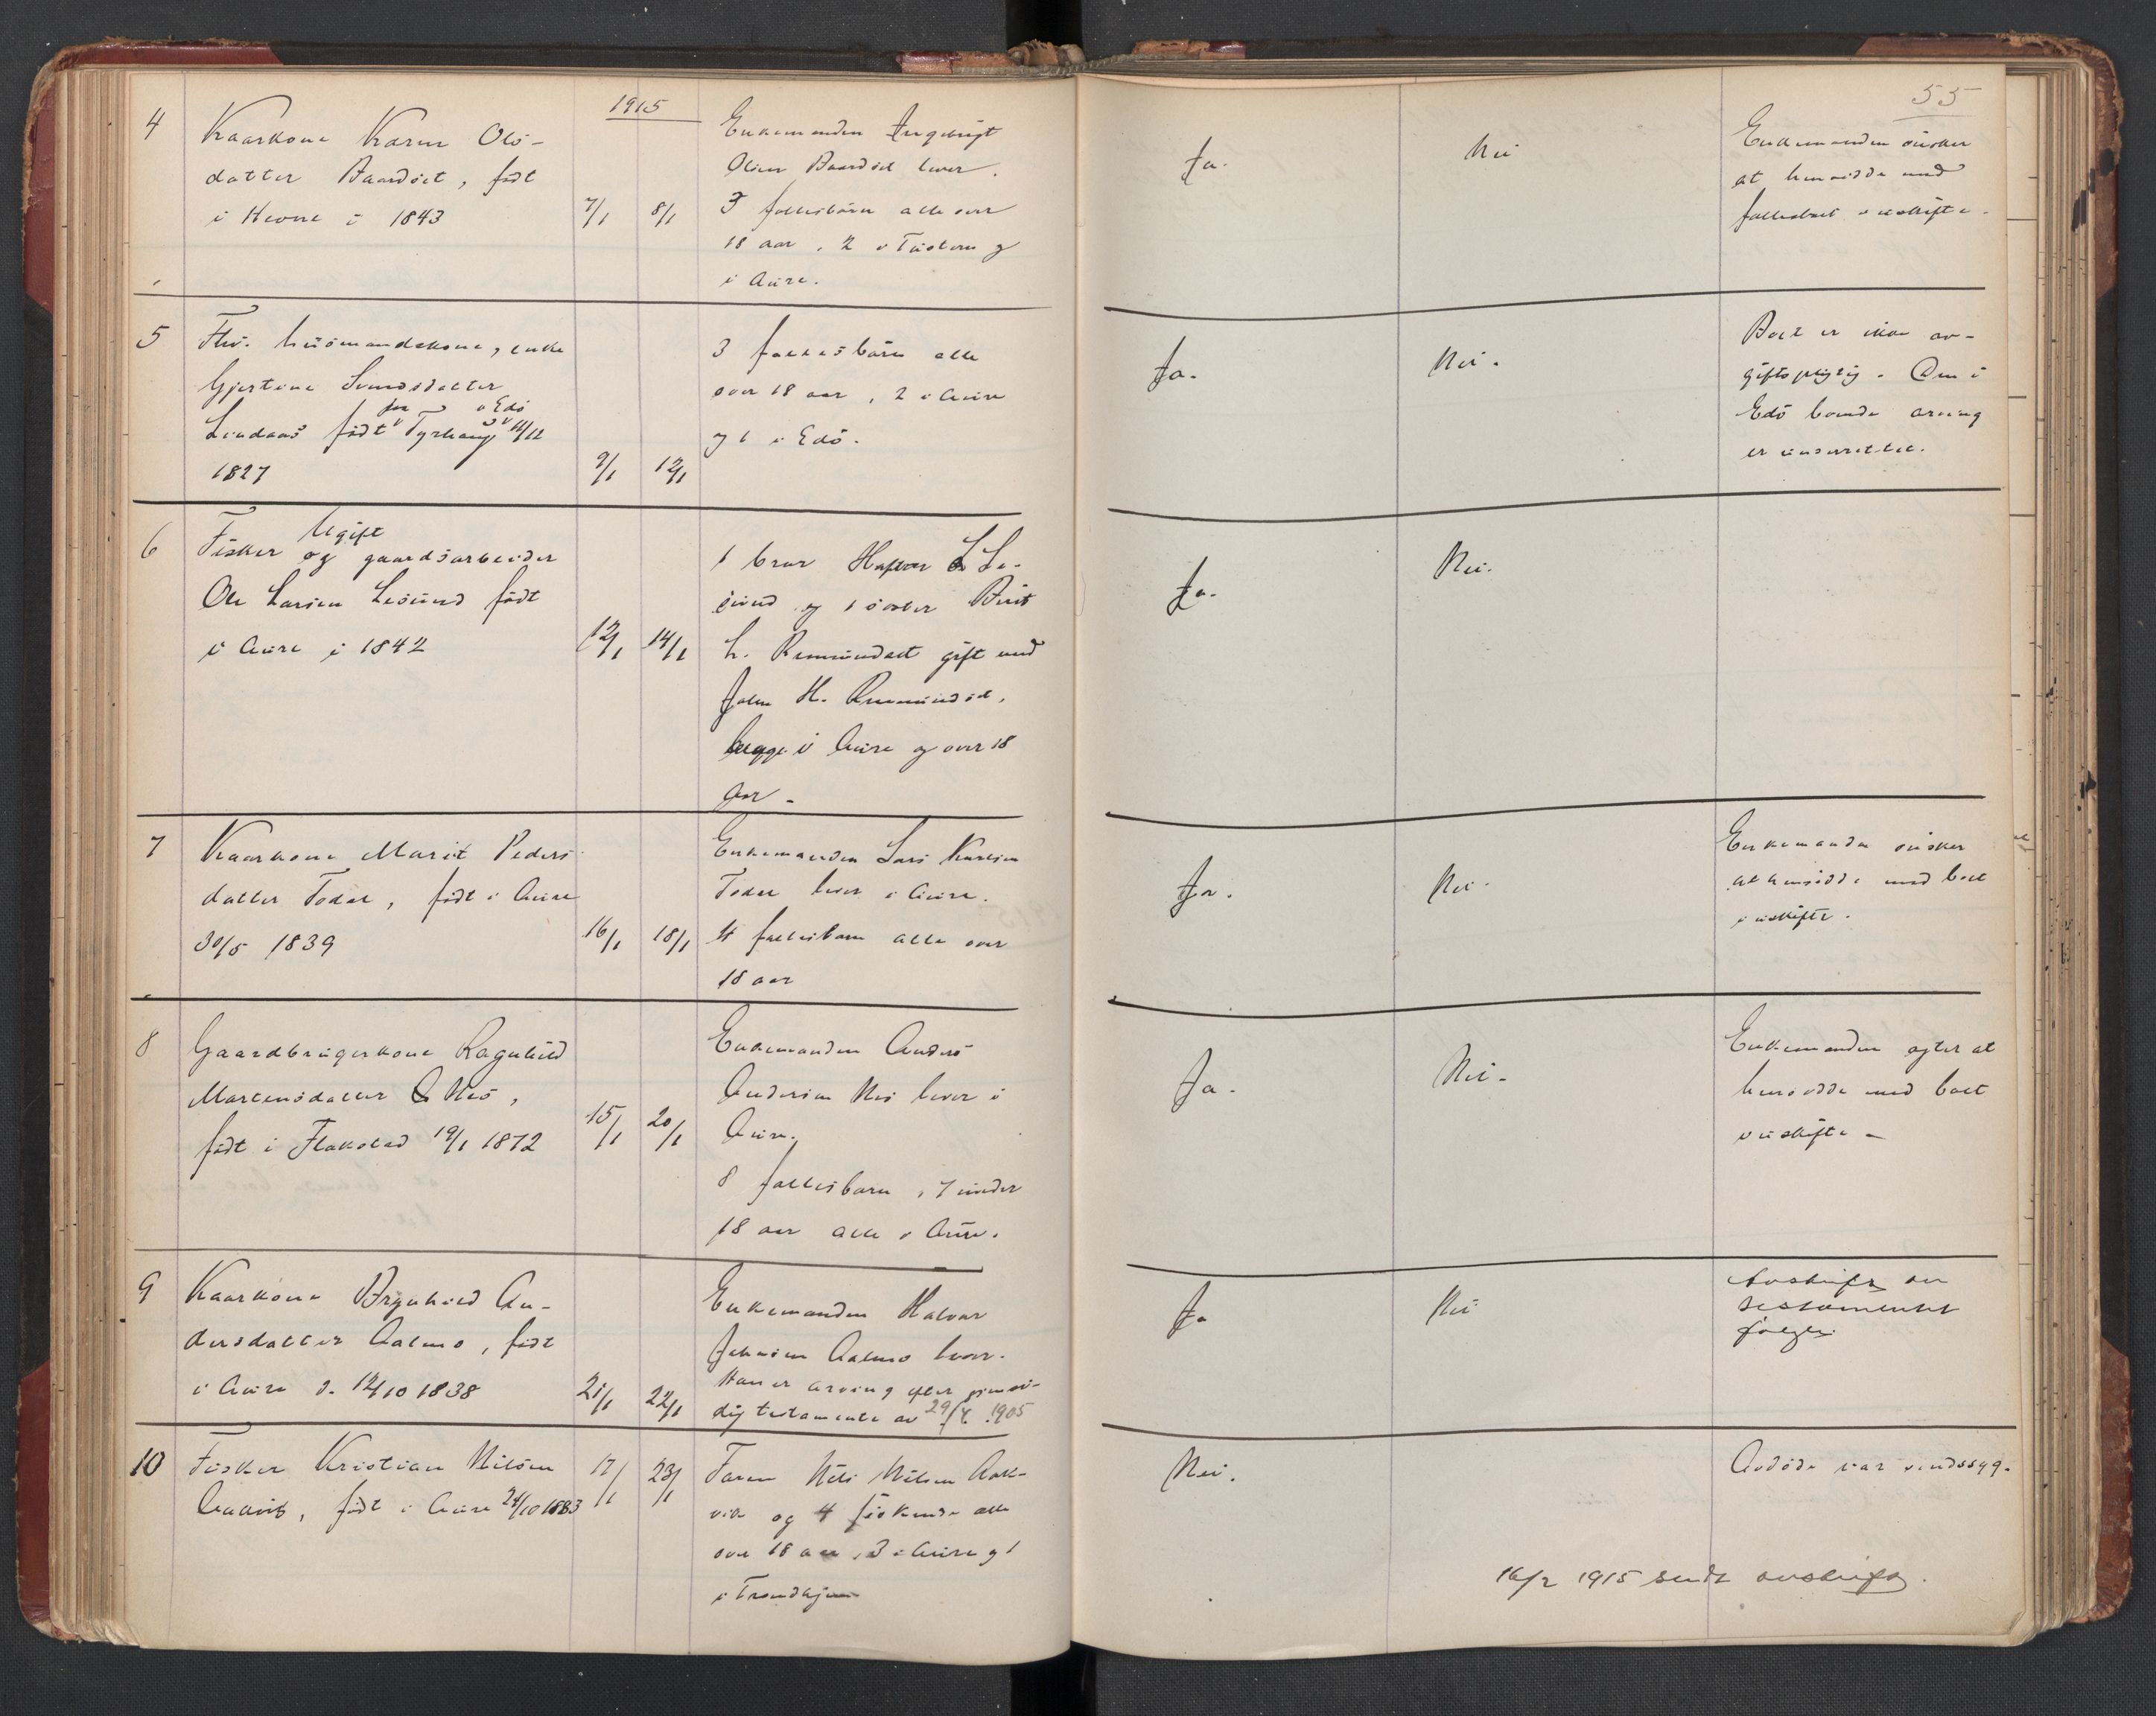 55
1915
4
Kaarkone Karen Ols-
datter Baardset, født
i Hevne i 1843
7/1 8/1
Enkemanden Ingebrigt
Olsen Baardset lever.
3 fællesbørn alle over
18 aar, 2 i Tustern og
i Aure.
Ja.
Nei
Enkemanden ønsker
at hensidde med
fællesboet i uskifte.
5
Fhv. husmandskone, enke
Gjertine Svendsdatter
Lindaas født i Tyrhaug 11/12
1827
9/1 12/1
3 fællesbørn alle
over 18 aar, 2 i Aure
og 1 i Edø.
Ja.
Nei.
Boet er ikke av-
giftspligtig. Den i
Edø boende arving
er underrettet.
6
Ugift
Fisker og gaardsarbeider
Ole Larsen Lesund født
i Aure i 1842
12/1 14/1
1 bror L. Le-
sund og 1 søster Berit
L. Remmundset gift med
John H. Remmundset,
begge i Aure og over 18
aar.
Ja.
Nei.
7
Kaarkone Marit Peders
datter Todal, født i Aure
30/5 1839
16/1 18/1
Enkemanden Lars Larsen
Todal lever i Aure.
4 fællesbarn alle over
18 aar
Ja.
Nei.
Enkemanden ønsker
at hensidde med boet
i uskifte.
8
Gaardbrugerkone Ragnhild
Martensdatter Nes,
født i Flakstad 19/1 1872
15/1 20/1
Enkemanden Anders
Andersen Nes lever i
Aure.
8 fællesbarn, 7 under
18 aar alle i Aure.
Ja.
Nei.
Enkemanden agter at
hensidde med boet
i uskifte.
9
Kaarkone Brynhild An-
dersdatter Aalmo, født
i Aure d. 12/10 1838
21/1 22/1
Enkemanden Halvor
Johnsen Aalmo lever.
Han er arving efter gjensi-
dig testamente av 29/4 1905
Ja
Nei
Avskrift av
testamentet
følger.
10
Fisker Kristian Nilsen
Aakvik, født i Aure 24/10 1883
17/1 23/1
Faren Nils Nilsen Aak-
vik og 4 søskende alle
over 18 aar, 3 i Aure og 1
i Trondhjem
Nei.
Avdøde var sindssyg.
16/2 1915 sendt avskrift.